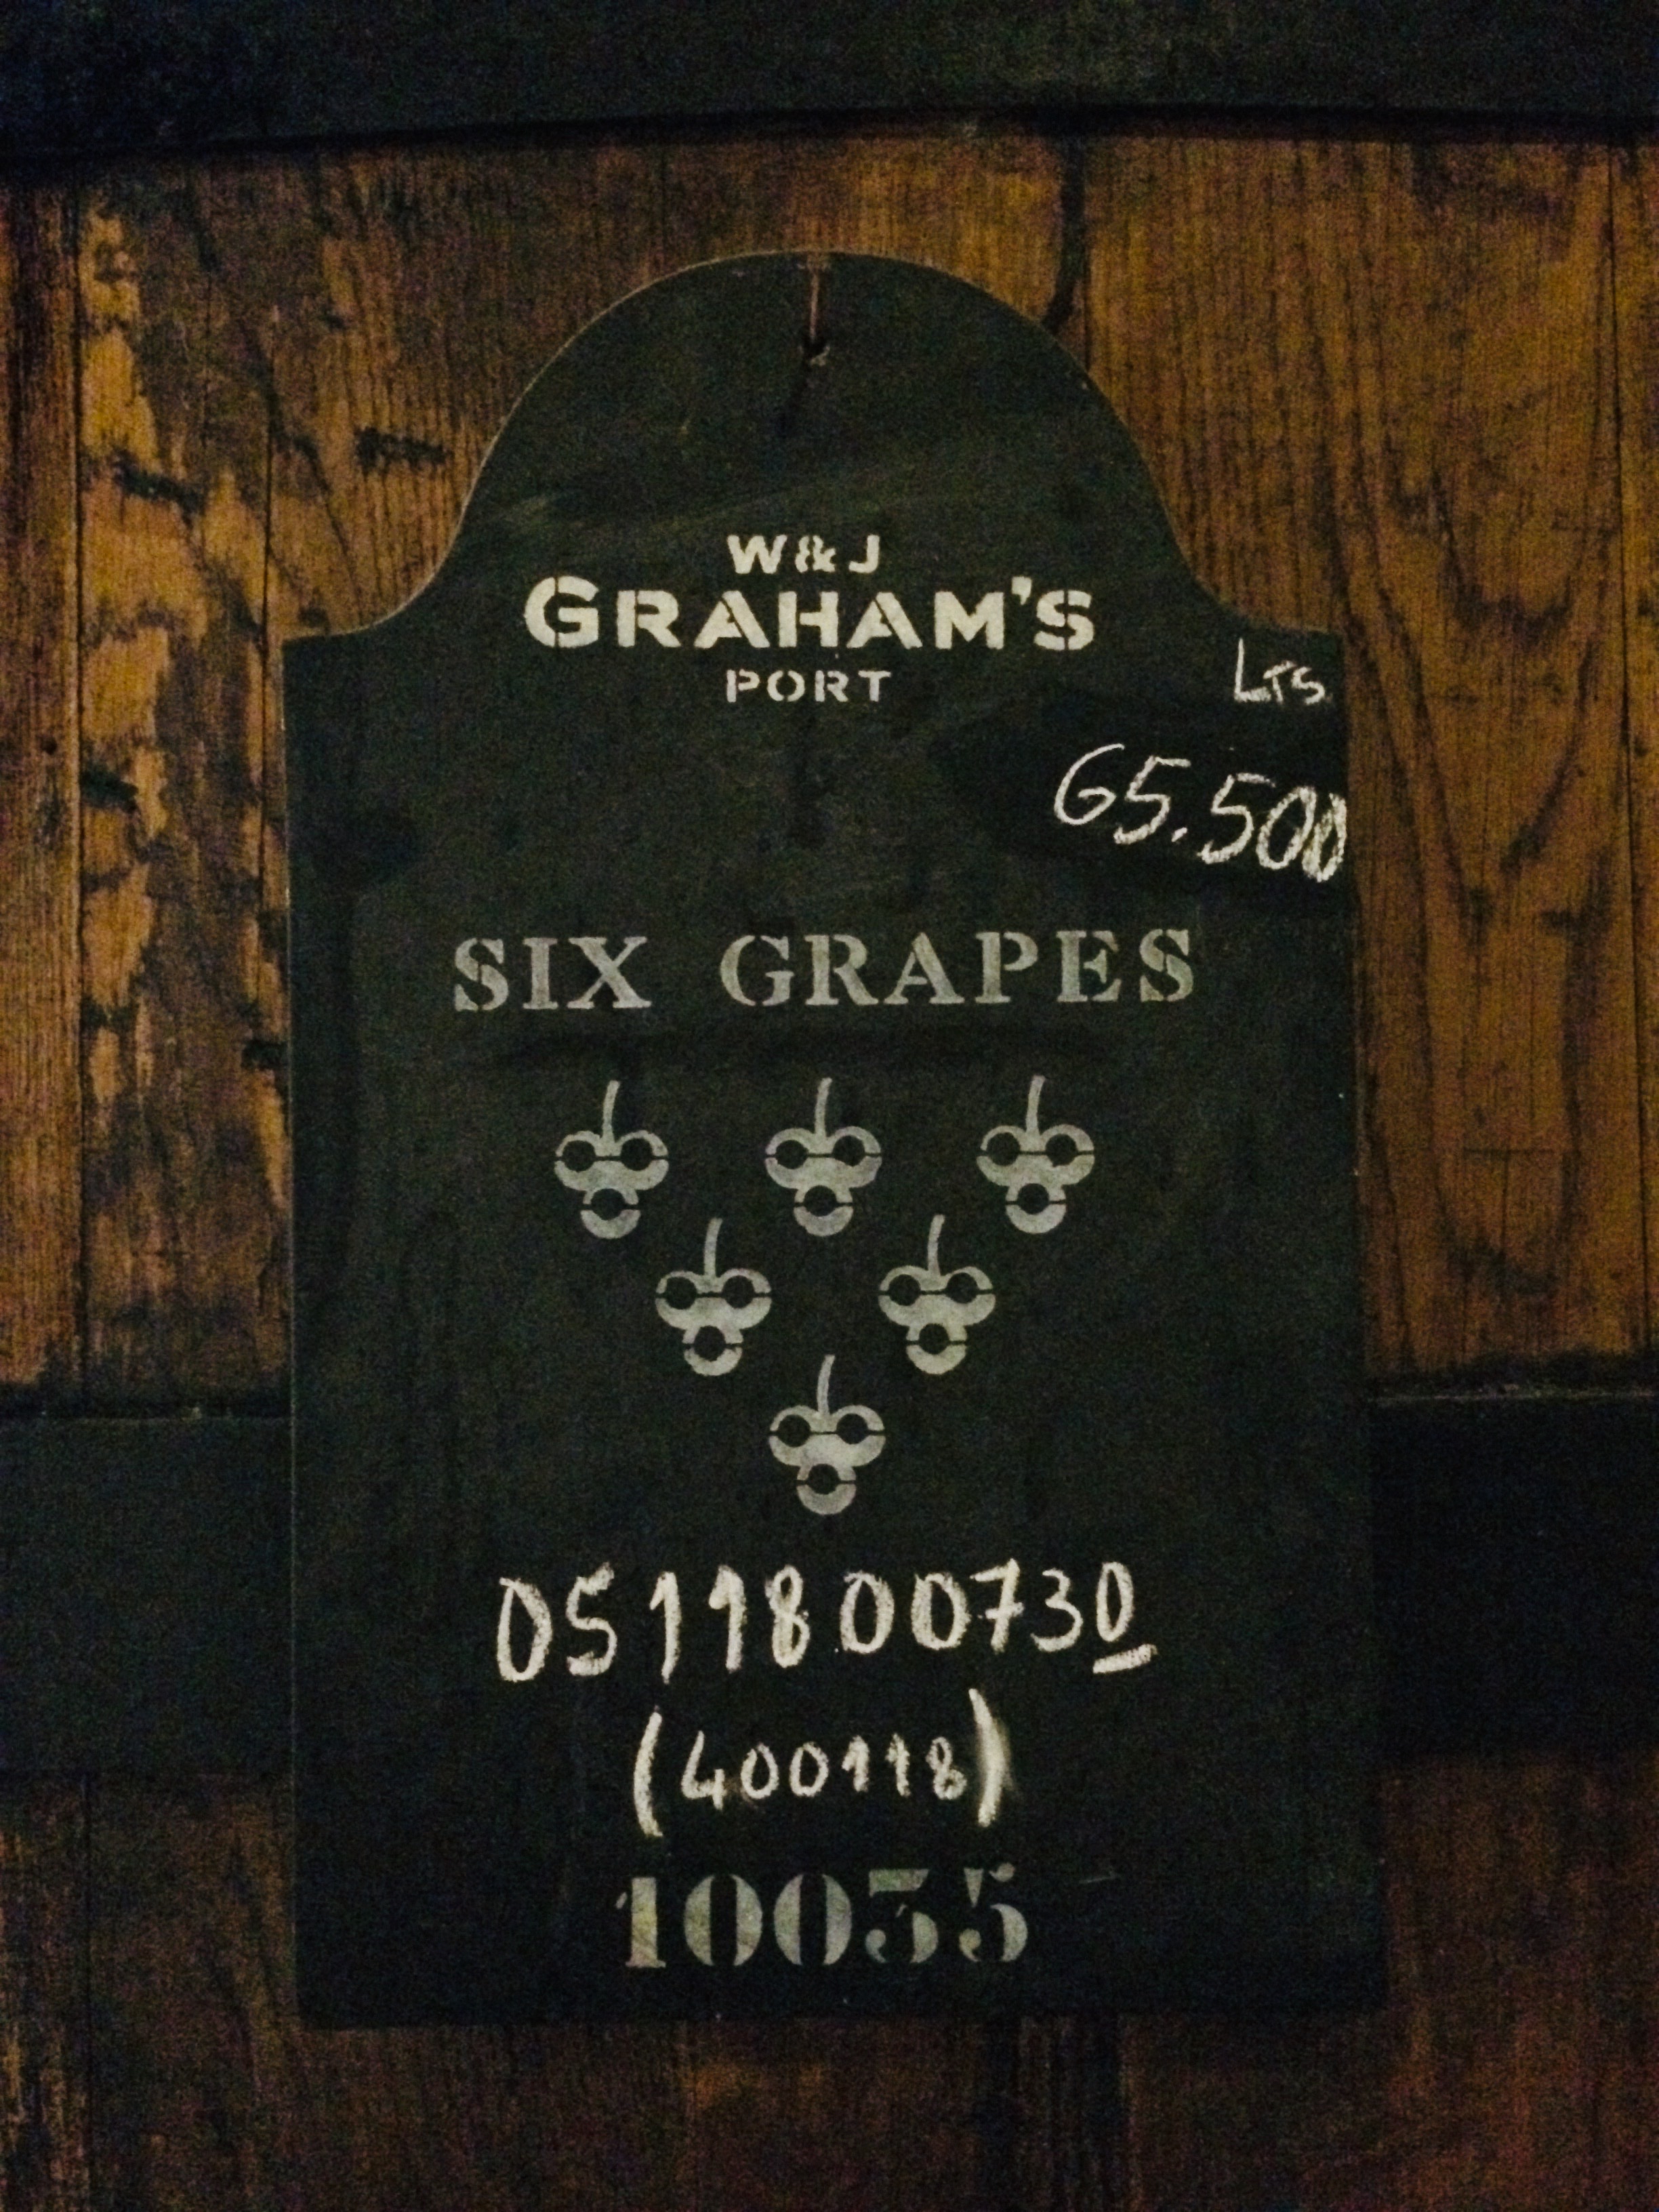 W&J
GRAHAM'S
PORT
LTS
65.500
SIX GRAPES
0511800730
(400118)
10035